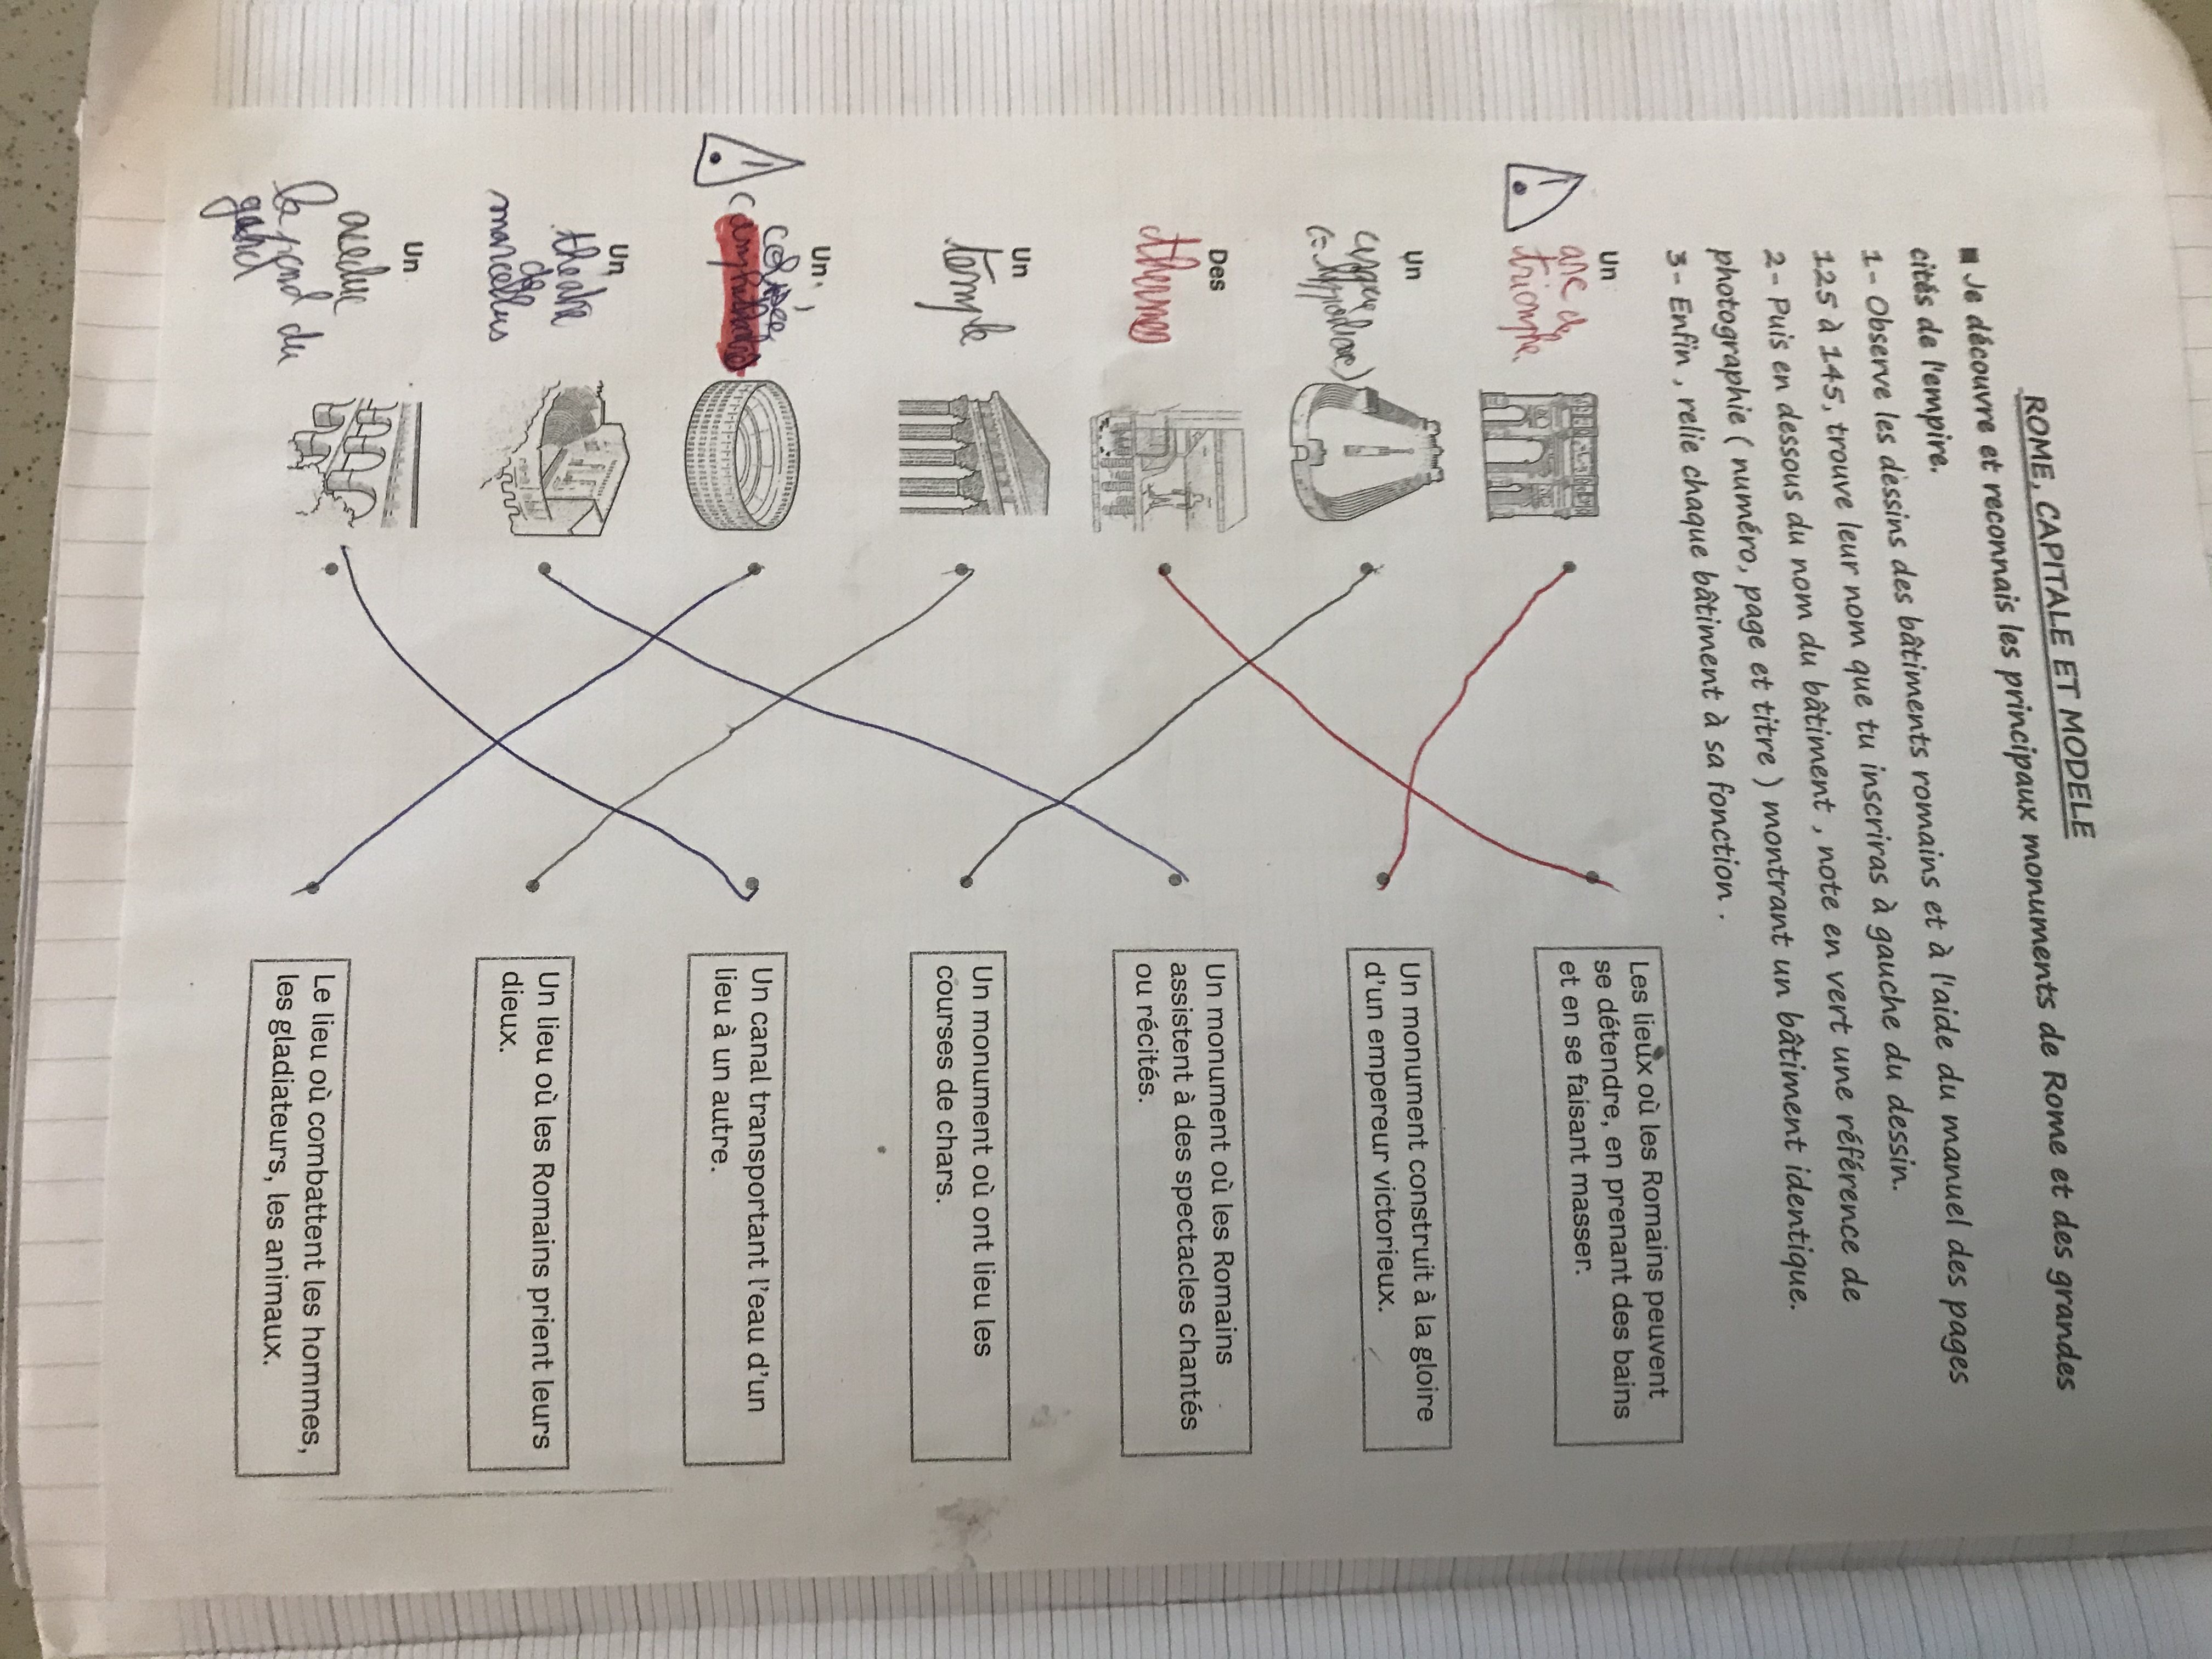 ROME, CAPITALE ET MODELE
■ Je découvre et reconnais les principaux monuments de Rome et des grandes
cités de l'empire.
1- Observe les dessins des bâtiments romains et à l'aide du manuel des pages
125 à 145, trouve leur nom que tu inscriras à gauche du dessin.
2- Puis en dessous du nom du bâtiment, note en vert une référence de
photographie ( numéro, page et titre ) montrant un bâtiment identique.
3- Enfin, relie chaque bâtiment à sa fonction.
Un
arc de
triomphe
Les lieux où les Romains peuvent
se détendre, en prenant des bains
et en se faisant masser.
Un
Un monument construit à la gloire
d'un empereur victorieux.
Des
thermes
Un monument où les Romains
assistent à des spectacles chantés
ou récités.
Un
temple
Un monument où ont lieu les
courses de chars.
Un
Un canal transportant l'eau d'un
lieu à un autre.
Un
theatre
de
marcellus
Un lieu où les Romains prient leurs
dieux.
Un
du
Le lieu où combattent les hommes,
les gladiateurs, les animaux.